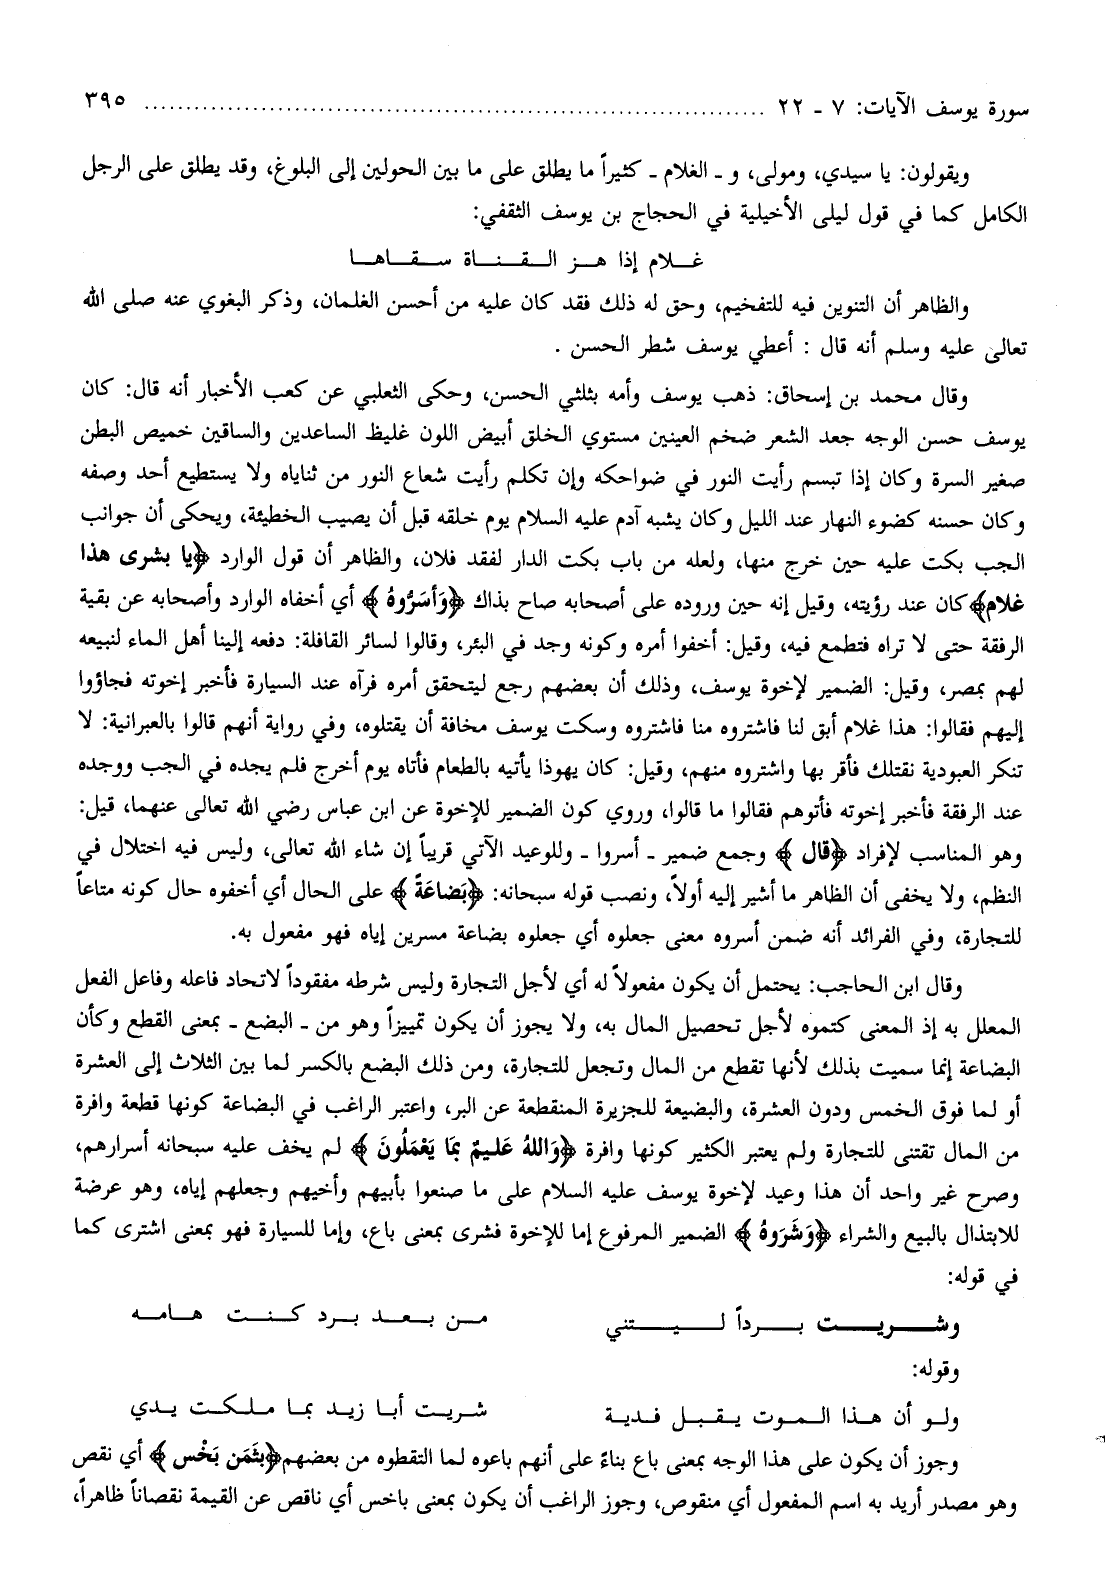 سورة يوسف الآيات: ٧ ـ ٢٢ ........................................................................ ٣٩٥
ويقولون: يا سيدي، ومولى، و ـ الغلام ـ كثيراً ما يطلق على ما بين الحولين إلى البلوغ، وقد يطلق على الرجل
الكامل كما في قول ليلى الأخيلية في الحجاج بن يوسف الثقفي:
غلام إذا هز القناة سقاها
والظاهر أن التنوين فيه للتفخيم، وحق له ذلك فقد كان عليه من أحسن الغلمان، وذكر البغوي عنه صلى الله
تعالى عليه وسلم أنه قال : أعطي يوسف شطر الحسن .
وقال محمد بن إسحاق: ذهب يوسف وأمه بثلثي الحسن، وحكى الثعلبي عن كعب الأخبار أنه قال: كان
يوسف حسن الوجه جعد الشعر ضخم العينين مستوي الخلق أبيض اللون غليظ الساعدين والساقين خميص البطن
صغير السرة وكان إذا تبسم رأيت النور في ضواحكه وإن تكلم رأيت شعاع النور من ثناياه ولا يستطيع أحد وصفه
وكان حسنه كضوء النهار عند الليل وكان يشبه آدم عليه السلام يوم خلقه قبل أن يصيب الخطيئة، ويحكى أن جوانب
الجب بكت عليه حين خرج منها، ولعله من باب بكت الدار لفقد فلان، والظاهر أن قول الوارد ﴿يا بشرى هذا
غلام﴾ كان عند رؤيته، وقيل إنه حين وروده على أصحابه صاح بذاك ﴿وَأَسَرُّوهُ﴾ أي أخفاه الوارد وأصحابه عن بقية
الرفقة حتى لا تراه فتطمع فيه، وقيل: أخفوا أمره وكونه وجد في البئر، وقالوا لسائر القافلة: دفعه إلينا أهل الماء لنبيعه
لهم بمصر، وقيل: الضمير لإخوة يوسف، وذلك أن بعضهم رجع ليتحقق أمره فرآه عند السيارة فأخبر إخوته فجاؤوا
إليهم فقالوا: هذا غلام أبق لنا فاشتروه منا فاشتروه وسكت يوسف مخافة أن يقتلوه، وفي رواية أنهم قالوا بالعبرانية: لا
تنكر العبودية نقتلك فأقر بها واشتروه منهم، وقيل: كان يهوذا يأتيه بالطعام فأتاه يوم أخرج فلم يجده في الجب ووجده
عند الرفقة فأخبر إخوته فأتوهم فقالوا ما قالوا، وروي كون الضمير للإخوة عن ابن عباس رضي الله تعالى عنهما، قيل:
وهو المناسب لإفراد ﴿قال﴾ وجمع ضمير ـ أسروا ـ وللوعيد الآتي قريباً إن شاء الله تعالى، وليس فيه اختلال في
النظم، ولا يخفى أن الظاهر ما أشير إليه أولاً، ونصب قوله سبحانه: ﴿بَضاعَةً﴾ على الحال أي أخفوه حال كونه متاعاً
للتجارة، وفي الفرائد أنه ضمن أسروه معنى جعلوه أي جعلوه بضاعة مسرين إياه فهو مفعول به.
وقال ابن الحاجب: يحتمل أن يكون مفعولاً له أي لأجل التجارة وليس شرطه مفقوداً لاتحاد فاعله وفاعل الفعل
المعلل به إذ المعنى كتموه لأجل تحصيل المال به، ولا يجوز أن يكون تمييزاً وهو من ـ البضع ـ بمعنى القطع وكأن
البضاعة إنما سميت بذلك لأنها تقطع من المال وتجعل للتجارة، ومن ذلك البضع بالكسر لما بين الثلاث إلى العشرة
أو لما فوق الخمس ودون العشرة، والبضيعة للجزيرة المنقطعة عن البر، واعتبر الراغب في البضاعة كونها قطعة وافرة
من المال تقتنى للتجارة ولم يعتبر الكثير كونها وافرة ﴿وَاللهُ عَليمٌ بمَا يَعْمَلُونَ﴾ لم يخف عليه سبحانه أسرارهم،
وصرح غير واحد أن هذا وعيد لإخوة يوسف عليه السلام على ما صنعوا بأبيهم وأخيهم وجعلهم إياه، وهو عرضة
للابتذال بالبيع والشراء ﴿وَشَرَوهُ﴾ الضمير المرفوع إما للإخوة فشرى بمعنى باع، وإما للسيارة فهو بمعنى اشترى كما
في قوله:
وشريت برداً ليتني من بعد برد كنت هامه
وقوله:
ولو أن هذا الموت يقبل فدية شريت أبا زيد بما ملكت يدي
وجوز أن يكون على هذا الوجه بمعنى باع بناءً على أنهم باعوه لما التقطوه من بعضهم ﴿بثَمَن بَخْس﴾ أي نقص
وهو مصدر أريد به اسم المفعول أي منقوص، وجوز الراغب أن يكون بمعنى باخس أي ناقص عن القيمة نقصاناً ظاهراً،